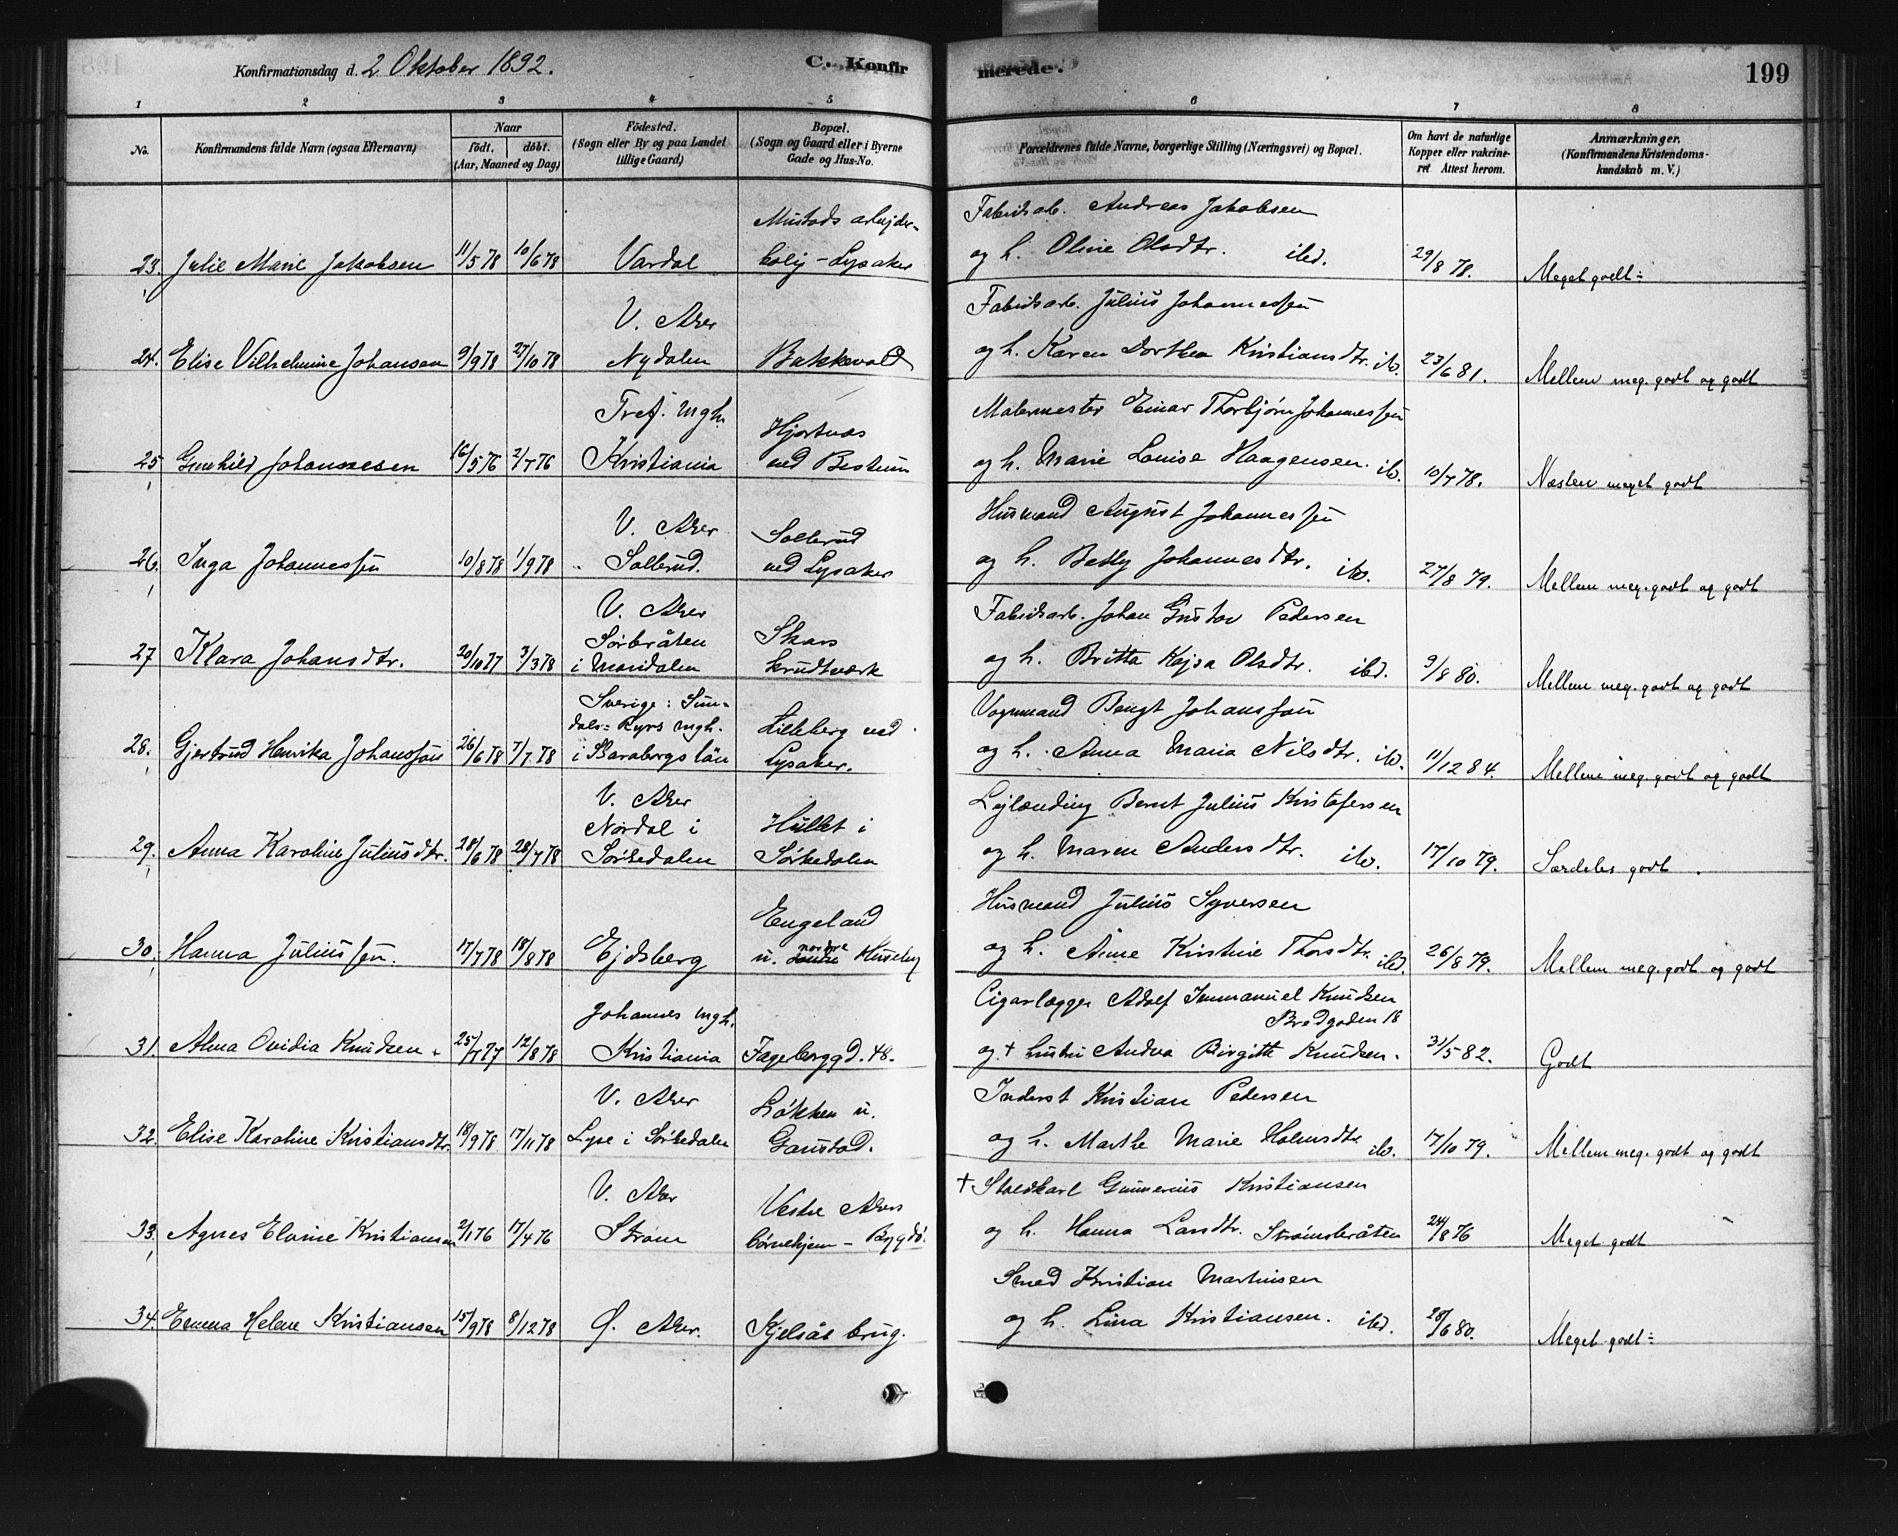 Konfirmationsdag d. 2 Oktober 1892.
C. Konfirmerede.
199
1 2 3 4 5 6 7 8
No.
Konfirmandens fulde Navn (ogsaa Efternavn)
Naar
födt. döbt.
(Aar, Maaned og Dag)
Födested.
(Sogn eller By og paa Landet
tillige Gaard)
Bopæl.
(Sogn og Gaard eller i Byerne
Gade og Hus-No.
Forældrenes fulde Navne, borgerlige Stilling (Næringsvei) og Bopæl.
Om havt de naturlige
Kopper eller vakcine-
ret Attest herom.
Anmærkninger.
(Konfirmandens Kristendoms-
kundskab m. V.)
Mustads arbejder-
Fabriksarb. Andreas Jakobsen
23. Julie Marie Jakobsen 11/5 78 10/6 78 Vardal bolig - Lysaker og h. Oline Olsdtr. ibd. 29/8 78. Meget godt÷
V. Aker
Fabriksarb. Julius Johannessen
24. Elise Vilhelmine Johansen 9/9 78 27/10 78 Nydalen Bakkevold og h. Karen Dorthea Kristiansdtr. ib. 23/6 81. Mellem meg. godt og godt
Tref. mgh. Hjortnæs
Malermester Einar Thorbjørn Johannessen
25 Gunhild Johannesen 16/5 76 2/7 76 Kristiania ved Bestum og h. Marie Louise Haagensen. ib. 10/7 78. Næsten meget godt
V. Aker Sollerud
Husmand August Johannessen
26. Inga Johannessen 10/8 78 1/9 78 Sollerud. ved Lysaker og h. Betty Johannesdtr. ib. 27/8 79. Mellem meg. godt og godt
V. Aker
Sørbråten Skars
Fabriksarb. Johan Gustav Pedersen
27 Klara Johansdtr. 20/10 77 3/3 78 i Maridalen krudtværk og h. Britta Kajsa Olsdtr. ibd. 9/8 80. Mellem meg. godt og godt
Sverige: Sun-
dals-Ryrs mgh. Lilleberg ved
Vognmand Bengt Johansson
28. Gjertrud Henrika Johansson 26/6 78 7/7 78 i Skaraborgs län Lysaker. og h. Anna Maria Nilsdtr. ib. 11/12 84. Mellem meg. godt og godt
V. Aker
Nordal i Hullet i
Lejlænding Bernt Julius Kristofersen
29. Anna Karoline Juliusdtr. 28/6 78 28/7 78 Sørkedalen Sørkedalen og h. Maren Andersdtr. ib. 17/10 79. Særdeles godt.
Engeland
Husmand Julius Syversen
nordre
30. Hanna Juliussen. 17/7 78 18/8 78 Ejdsberg u. søndre Huseby og h. Anne Kristine Thorsdtr. ibd. 26/8 79. Mellem meg. godt og godt
Johannes mgh.
Cigarlægger Adolf Immanuel Knudsen
Bredgaden 18
31. Alma Ovidia Knudsen 25/7 77 12/8 78 Kristiania Fagerborggd. 48. og † hustru Andrea Birgitte Knudsen. 31/5 82. Godt
V. Aker Løkken u.
Inderst Kristian Pedersen
32. Elise Karoline Kristiansdtr. 18/9 78 17/11 78 Lyse i Sørkedalen Gaustad. og h. Marthe Marie Holmsdtr ib. 17/10 79. Mellem meg. godt og godt
V. Aker Vestre Akers
† Staldkarl Gunnerius Kristiansen
33. Agnes Elvine Kristiansen 2/1 76 17/4 76 Strøm børnehjem - Bygdö. og h. Hanna Larsdtr. Strømsbråten 24/8 76 Meget godt
Smed Kristian Martinsen
34. Emma Helene Kristiansen 15/9 78 8/12 78 Ø. Aker. Kjelsås brug. og h. Lina Kristiansen. ibd. 28/6 80. Meget godt÷